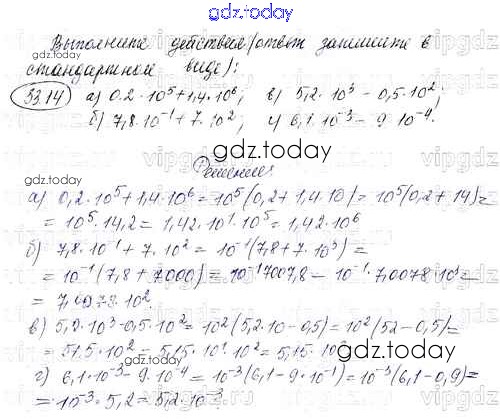 gdz.today
Выполните действия (ответ запишите в
стандартном виде):
33.14 а) 0,2·10⁵+1,4·10⁶; в) 5,2·10³ – 0,5·10²;
б) 7,8·10⁻¹+7·10²; г) 6,1·10⁻³ – 9·10⁻⁴.
gdz.today
Решение:
а) 0,2·10⁵+1,4·10⁶=10⁵(0,2+1,4·10)=10⁵(0,2+14)=
=10⁵·14,2=1,42·10¹·10⁵=1,42·10⁶
б) 7,8·10⁻¹+7·10²=10⁻¹(7,8+7·10³)=
=10⁻¹(7,8+7000)=10⁻¹·7007,8=10⁻¹·7,0078·10³=
=7,0078·10².
в) 5,2·10³-0,5·10²=10²(5,2·10-0,5)=10²(52-0,5)=
=51,5·10²=5,15·10¹·10²=5,15·10³
gdz.today
г) 6,1·10⁻³-9·10⁻⁴=10⁻³(6,1-9·10⁻¹)=10⁻³(6,1-0,9)=
=10⁻³·5,2=5,2·10⁻³.
gdz.today